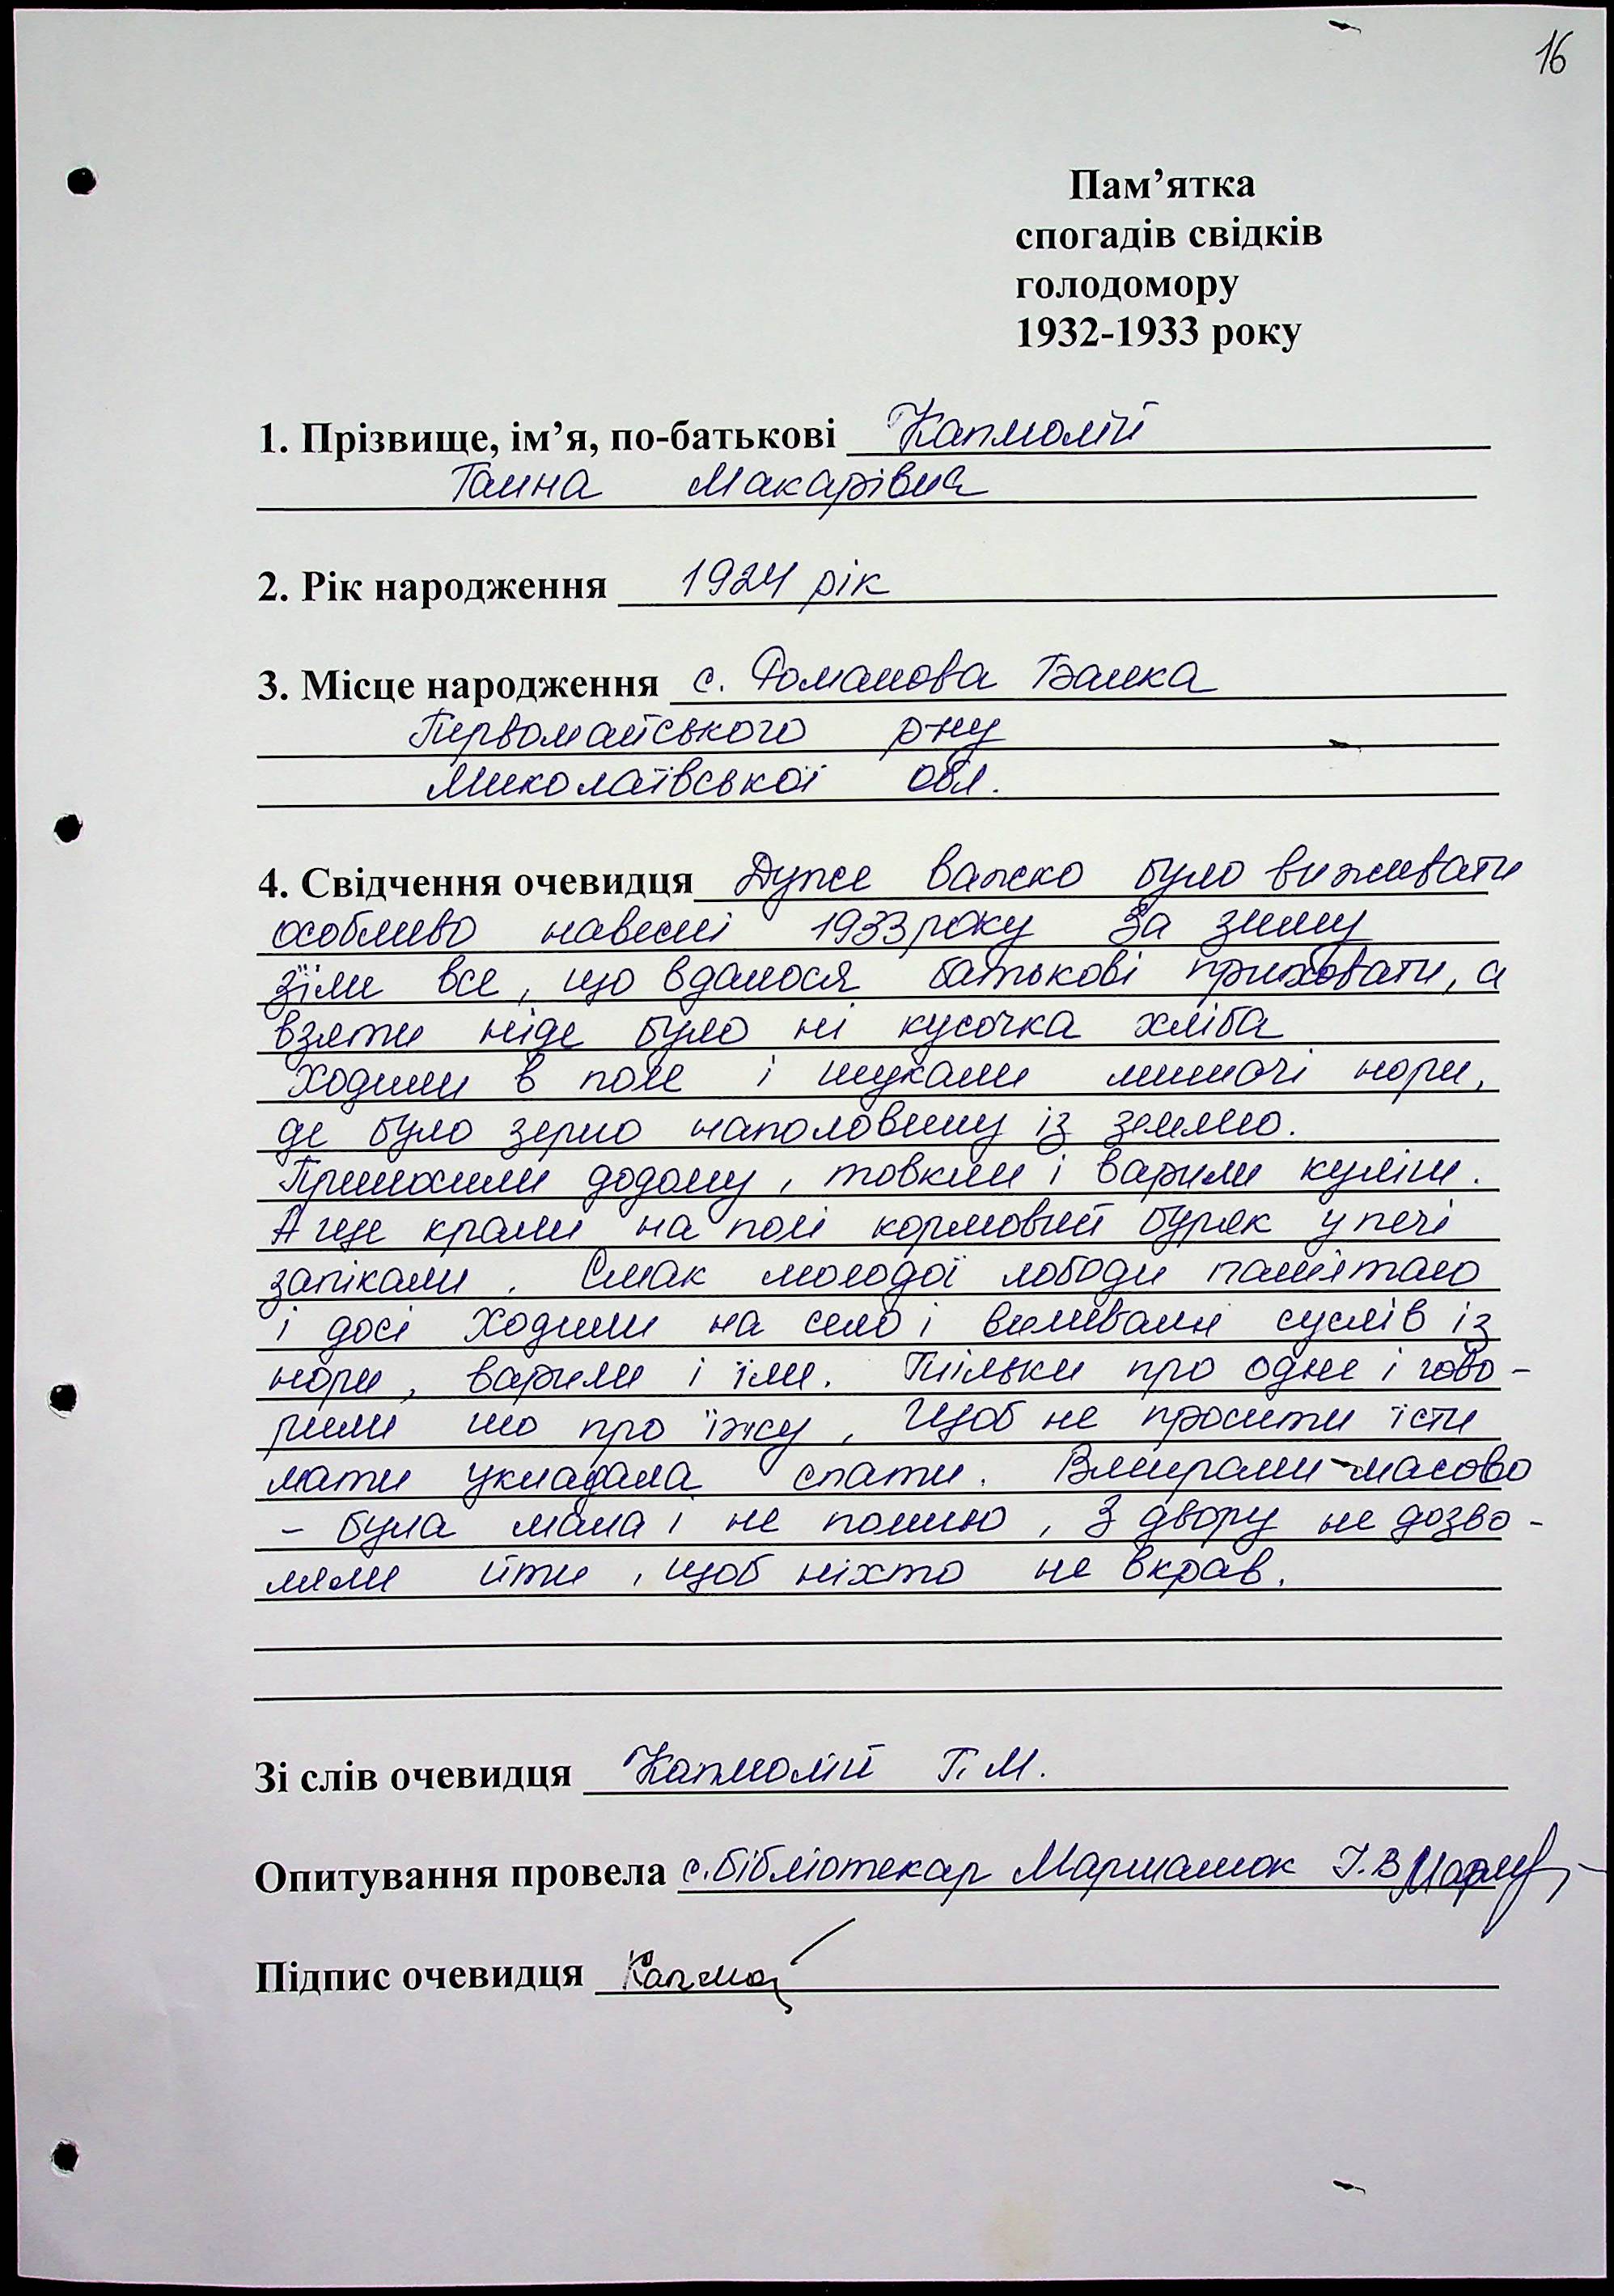 16
Пам’ятка
спогадів свідків
голодомору
1932-1933 року
1. Прізвище, ім’я, по-батькові Капмолій
Ганна Макарівна
2. Рік народження 1924 рік
3. Місце народження с. Романова Балка
Первомайського р-ну
Миколаївської обл.
4. Свідчення очевидця Дуже важко було виживати
особливо навесні 1933 року За зиму
зїли все, що вдалося батькові приховати, а
взяти ніде було ні кусочка хліба
Ходили в поле і шукали мишачі нори,
де було зерно наполовину із землею.
Приносили додому, товкли і варили куліш.
А ще крали на полі кормовий буряк у печі
запікали. Смак молодої лободи памятаю
і досі Ходили на село і виливали суслів із
нори, варили і їли. Тільки про одне і гово-
рили що про їжу, щоб не просити їсти
мати укладала спати. Вмирали масово
- була мала і не помню, З двору не дозво-
ляли йти, щоб ніхто не вкрав.
Зі слів очевидця Капмолій Г. М.
Опитування провела с.бібліотекар Маршалюк І.В
Підпис очевидця